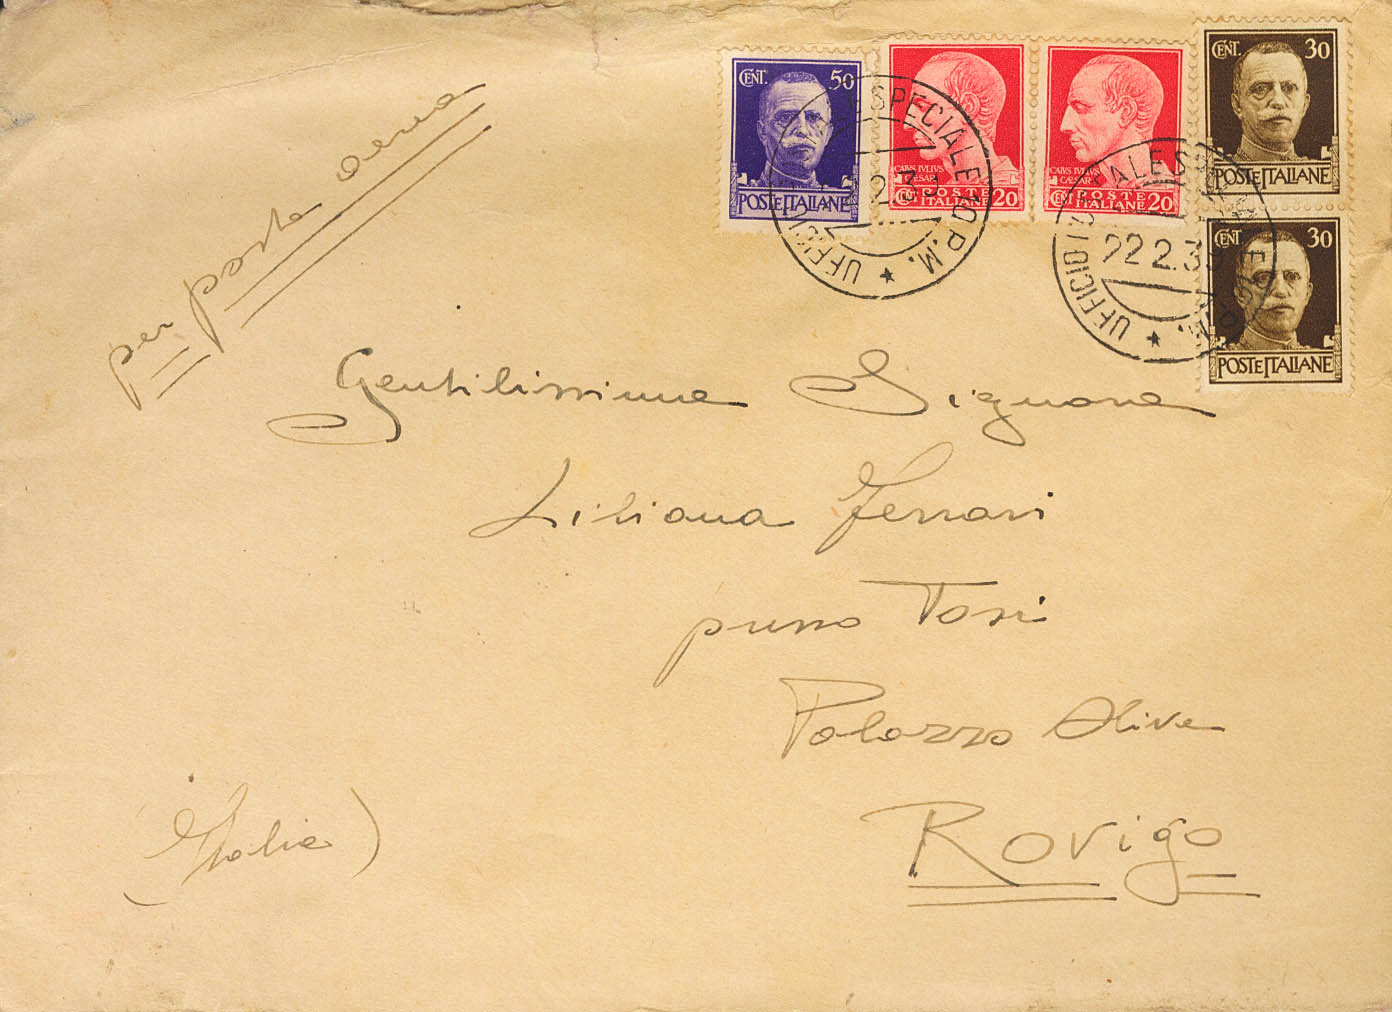 per posta aerea
CENT. 50
POSTE ITALIANE
CAIVS IVLIVS
CAESAR
CENT POSTE
ITALIANE 20
CAIVS IVLIVS
CAESAR
CENT POSTE
ITALIANE 20
CENT. 30
POSTE ITALIANE
CENT. 30
POSTE ITALIANE
SPECIALE
UFFICIO
22 2.39
UFFICIO
Gentilissima Signora
Liliana Ferrari
presso Tosi
Palazzo Oliva
Rovigo
(Italia)